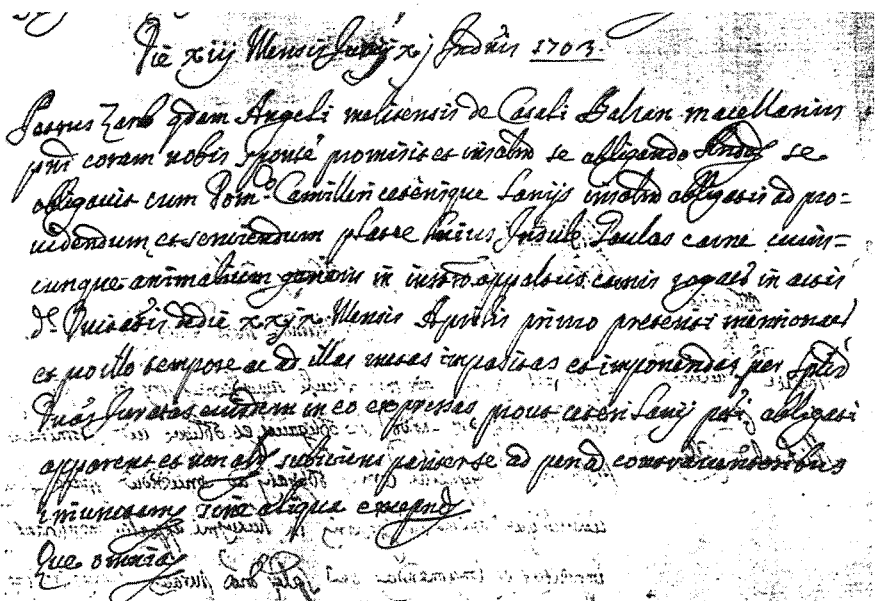 Die xiij Mensis Junij xj Indnis 1703.
Petrus Zarb qdam Angeli melitensis de Casali Balsan macellarius
pnti coram nobis sponte promisit et insolm se obligando se
obligavit cum Domco Camilleri ceterisque socijs insolm obligatis ad pro=
videndum et serviendum platee huius Insule Paulas carne cuius=
cunque animalium generis in appaltus carnis rogato in actis
die xxix Mensis Aprilis primo preteriti mentionat
et pro illo tempore ac ad illas metas impositas et imponendas per
Juratos eiusdem in eo expressas prout ceteri socij pti obligati
apparent et non als subiiciens pariter se ad penas contravenientibus
sine aliqua exceptne
Que omnia